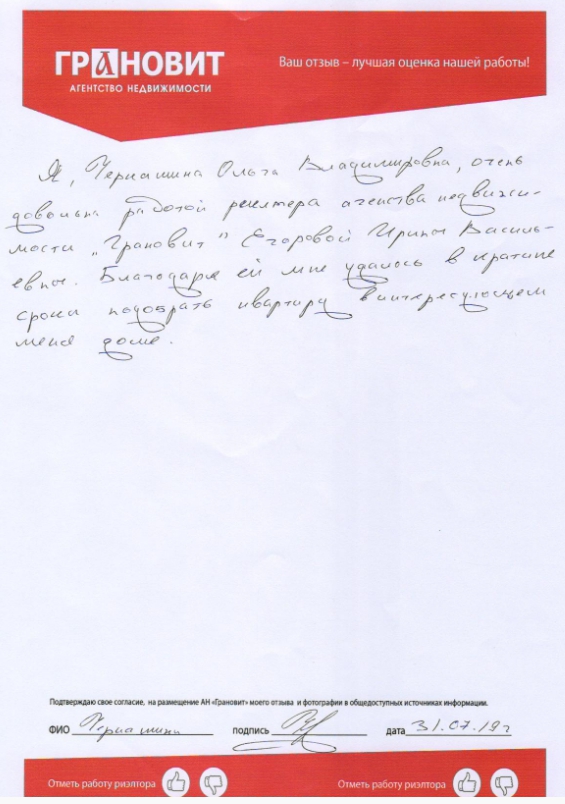 ГРАНОВИТ
АГЕНТСТВО НЕДВИЖИМОСТИ
Ваш отзыв – лучшая оценка нашей работы!
Я, Ольга Владимировна, очень
довольна работой реелтера агенства недвижи-
мости „Грановит" Егоровой Ирины Василь-
евны. Благодаря ей мне удалось в кратчие
сроки подобрать квартиру в интересующем
меня доме.
Подтверждаю свое согласие, на размещение АН «Грановит» моего отзыва и фотографии в общедоступных источниках информации.
ФИО подпись дата 31.07.19г
Отметь работу риэлтора Отметь работу риэлтора